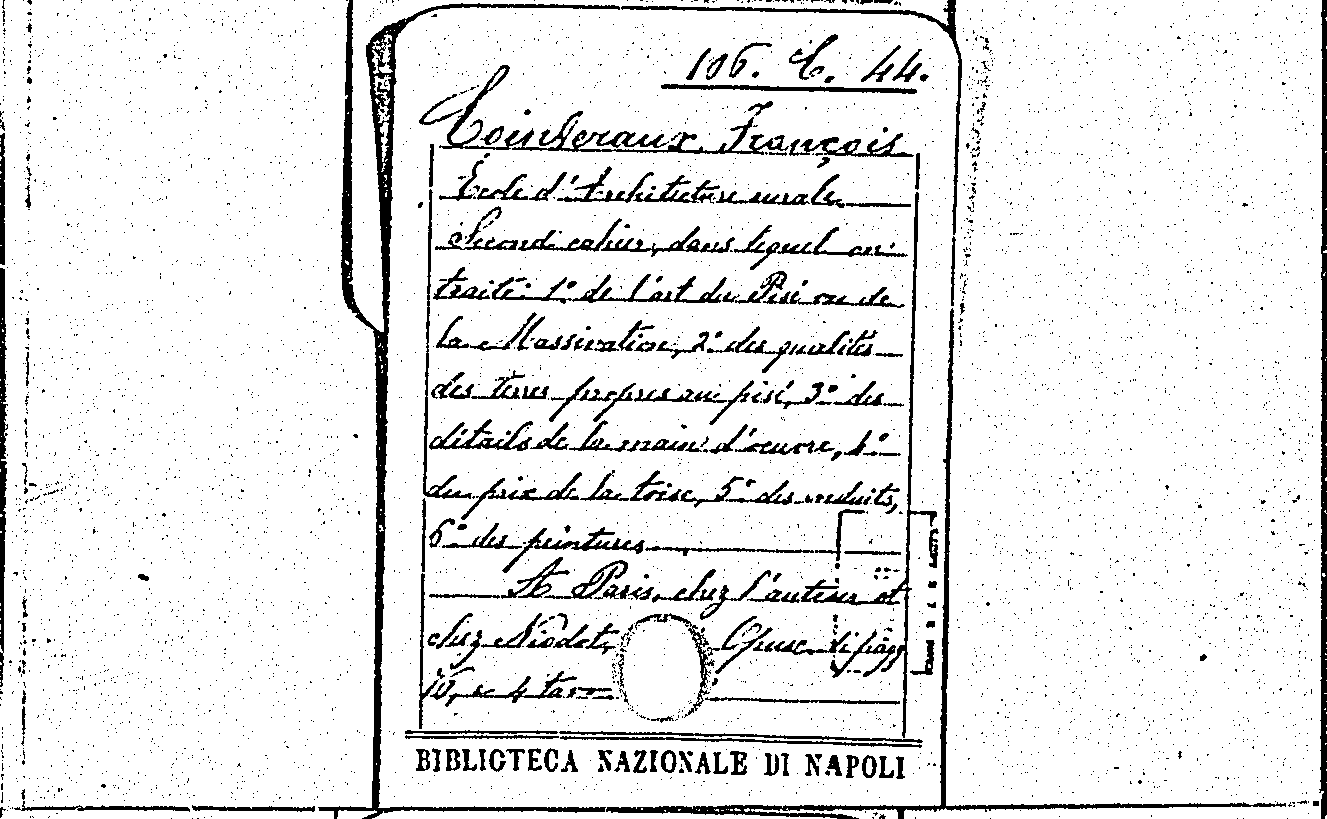 106. C. 44.
Cointeraux François
École d'Architecture rurale.
Second cahier, dans lequel on
traite: 1° de l'art du Pisé ou de
la Massivation, 2° des qualités
des terres propres au pisé, 3° des
détails de la main d'oeuvre, 4°
du prix de la toise, 5° des enduits,
6° des peintures
A Paris, chez l'auteur et
chez Niodot, Opusc. di pagg
e 4 tavv
BIBLIOTECA NAZIONALE DI NAPOLI